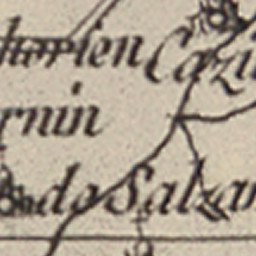 horien Cazi
rnin
de Salzan